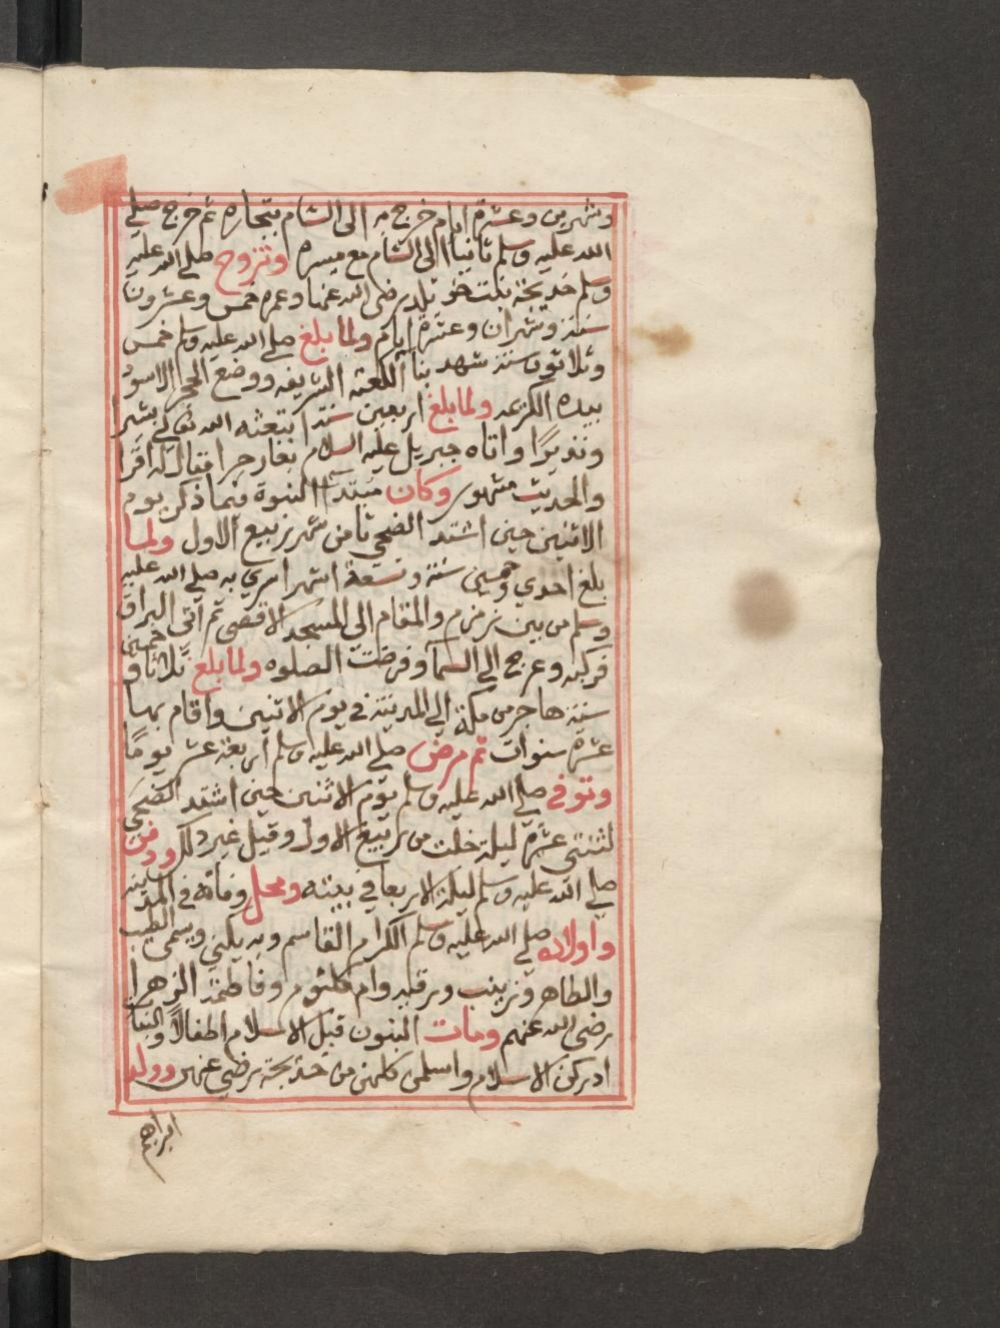 وشهرين وعشرة ايام خرج به الى الشام بتجارة ثم خرج صلي
الله عليه وسلم ثانيا الى الشام مع ميسرة وتزوج صلى الله عليه
وسلم خديجة بنت خويلد رضي الله عنها وعمره خمس وعشرون
سنة وشهران وعشرة ايام ولما بلغ صلى الله عليه وسلم خمس
وثلاثون سنة شهد بنا الكعبة الشريفه ووضع الحجر الاسود
بيده الكريمه ولما بلغ اربعين سنة ابتعثه الله تعالى بشيرا
ونذيرًا واتاه جبريل عليه السلام بغار حرا فقال له اقرا
والحديث مشهور وكان مبتدا النبوة فيما ذكر يوم
الاثنين حين اشتد الضحي ثامن شهر ربيع الاول ولما
بلغ احدي وخمسين سنة وتسعة اشهر اسري به صلي الله عليه
وسلم من بين زمزم والمقام الي المسجد الاقصى ثم اتي البراق
فركبه وعرج الي السما وفرضت الصلوه ولما بلغ ثلاثا وخمسين
سنة هاجر من مكة الي المدينة في يوم الاثنين واقام بها
عشرة سنوات ثم مرض صلي الله عليه وسلم اربعة عشر يومًا
وتوفي صلي الله عليه وسلم يوم الاثنين حين اشتد الضحي
لثنتي عشرة ليلة خلت من ربيع الاول وقيل غير ذلك ودفن
صلي الله عليه وسلم ليلة الاربعا في بيته ومحل وفاته في المدينه
واولاده صلي الله عليه وسلم الكرام القاسم وبه يكني ويسمى الطيب
والطاهر وزينب ورقيه وام كلثوم وفاطمة الزهرا
رضي الله عنهم ومات البنون قبل الاسلام اطفالًا والبنات
ادركن الاسلام واسلمن كلهن من خديجة رضي عنهن وولد
ابراهيم